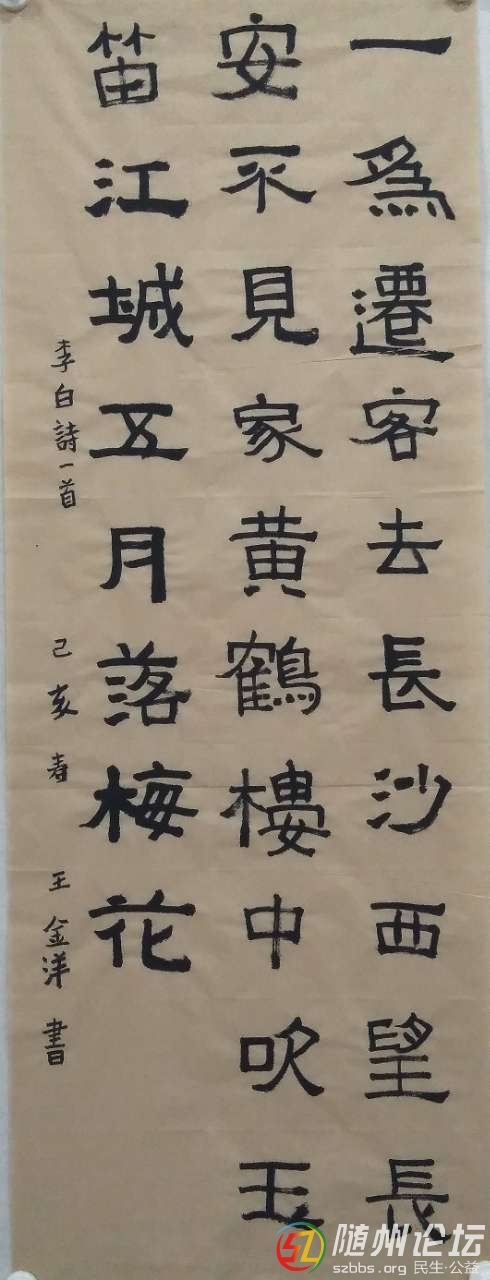 一爲遷客去長沙西望長
安不見家黄鶴樓中吹玉
笛江城五月落梅花
李白詩一首 己亥春 王金洋書
随州论坛
szbbs.org 民生·公益